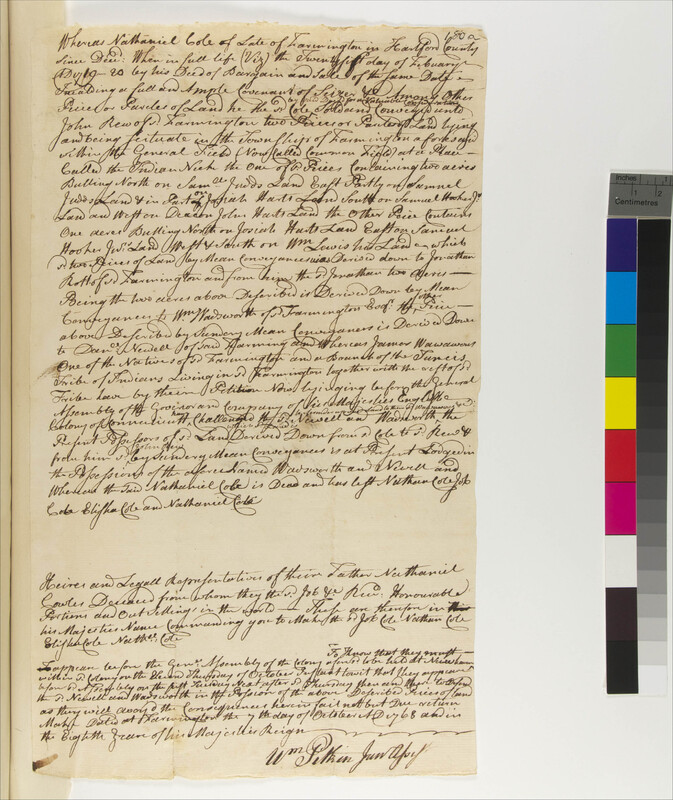 180 a
Whereas Nathaniel Cole of Late of Farmington in Hartford County
Since Decd: When in full life (Viz) the Twenty first day of February
by his Deed of Bargain and Sale of the Same Date
Including a full and Ample Covenant of Seizen &c Among Other
Piece or Parcles of Land he the sd Cole Convey'd unto
John Rew of sd Farmington two Pieces or Parcles of Land Lying
and being Scituate in the Township of Farmington aforesaid
within the General Field (Now Called Common Field) at a Place
Called the Indian Neck the One of sd Pieces Containing two acres
Butting North on Samll Judds Land East Partly on Samuel
Judds Land & in Part on Josiah Harts Land South on Samuel Hooker Jr
Land and West on Deacon John Harts Land the Other Peice Contains
One acre Butting North on Josiah Harts Land East on Samuel
Hooker Jr Land West & South on Wm Lewis his Land which
sd two Pieces of Land by Mean Conveyances is Derived down to Jonathan
Root of sd Farmington and from him the sd Jonathan two Acres
Being the two acres above Described is Derived Down by Mean
Conveyances to Wm Wadsworth of sd Farmington Esqr the other Peice
above Described by Sundery Mean Conveyances is Derived Down
to Danll Newell of said Farmington and Whereas James Wawawous
One of the Natives of sd Farmington and a Branch of the Tuncis
Tribe of Indians Living in sd Farmington together with the rest of sd
Tribe have by their Petition Now lying before the General
Assembly of the Govenor and Company of his Majesties English
Colony of Connecticutt, Challenged the sd Newell and Wadsworth the
Present Possessors of sd Land Derived Down from sd Cole to sd Rew &
from him sd by Sundery Mean Conveyances is at Present Lodged in
the Possessions of the afore Named Wadsworth and Newell and
Whereas the said Nathaniel Cole is Dead and has left Nathan Cole Job
Cole Elisha Cole and Nathaniel Cole
Heires and Legall Representatives of their Father Nathaniel
Cowles Deceased from whom they the sd Job &c Recd: Honourable
Portions and Out Settings in the world — These are therefore in
his Majesties Name Commanding you to Make the sd Job Cole Nathan Cole
Elisha Cole Nathll Cole
To Know that they must
appear before the Genll Assembly of the Colony aforesd to be held at New haven
within sd Colony on the Second Thursday of October Instant to wit that they appear
before sd Assembly on the first Tuesday Next after sd Thursday then and there to Defend
the sd Newell and Wadsworth in the Possesion of the above Described Pieces of Land
as they will avoyd the Consequences herein fail not but Due return
Make Dated at Farmington the 7th day of October AD 1768 and in
the Eighth Year of his Majesties Reign
Wm Pitkin Junr Assist